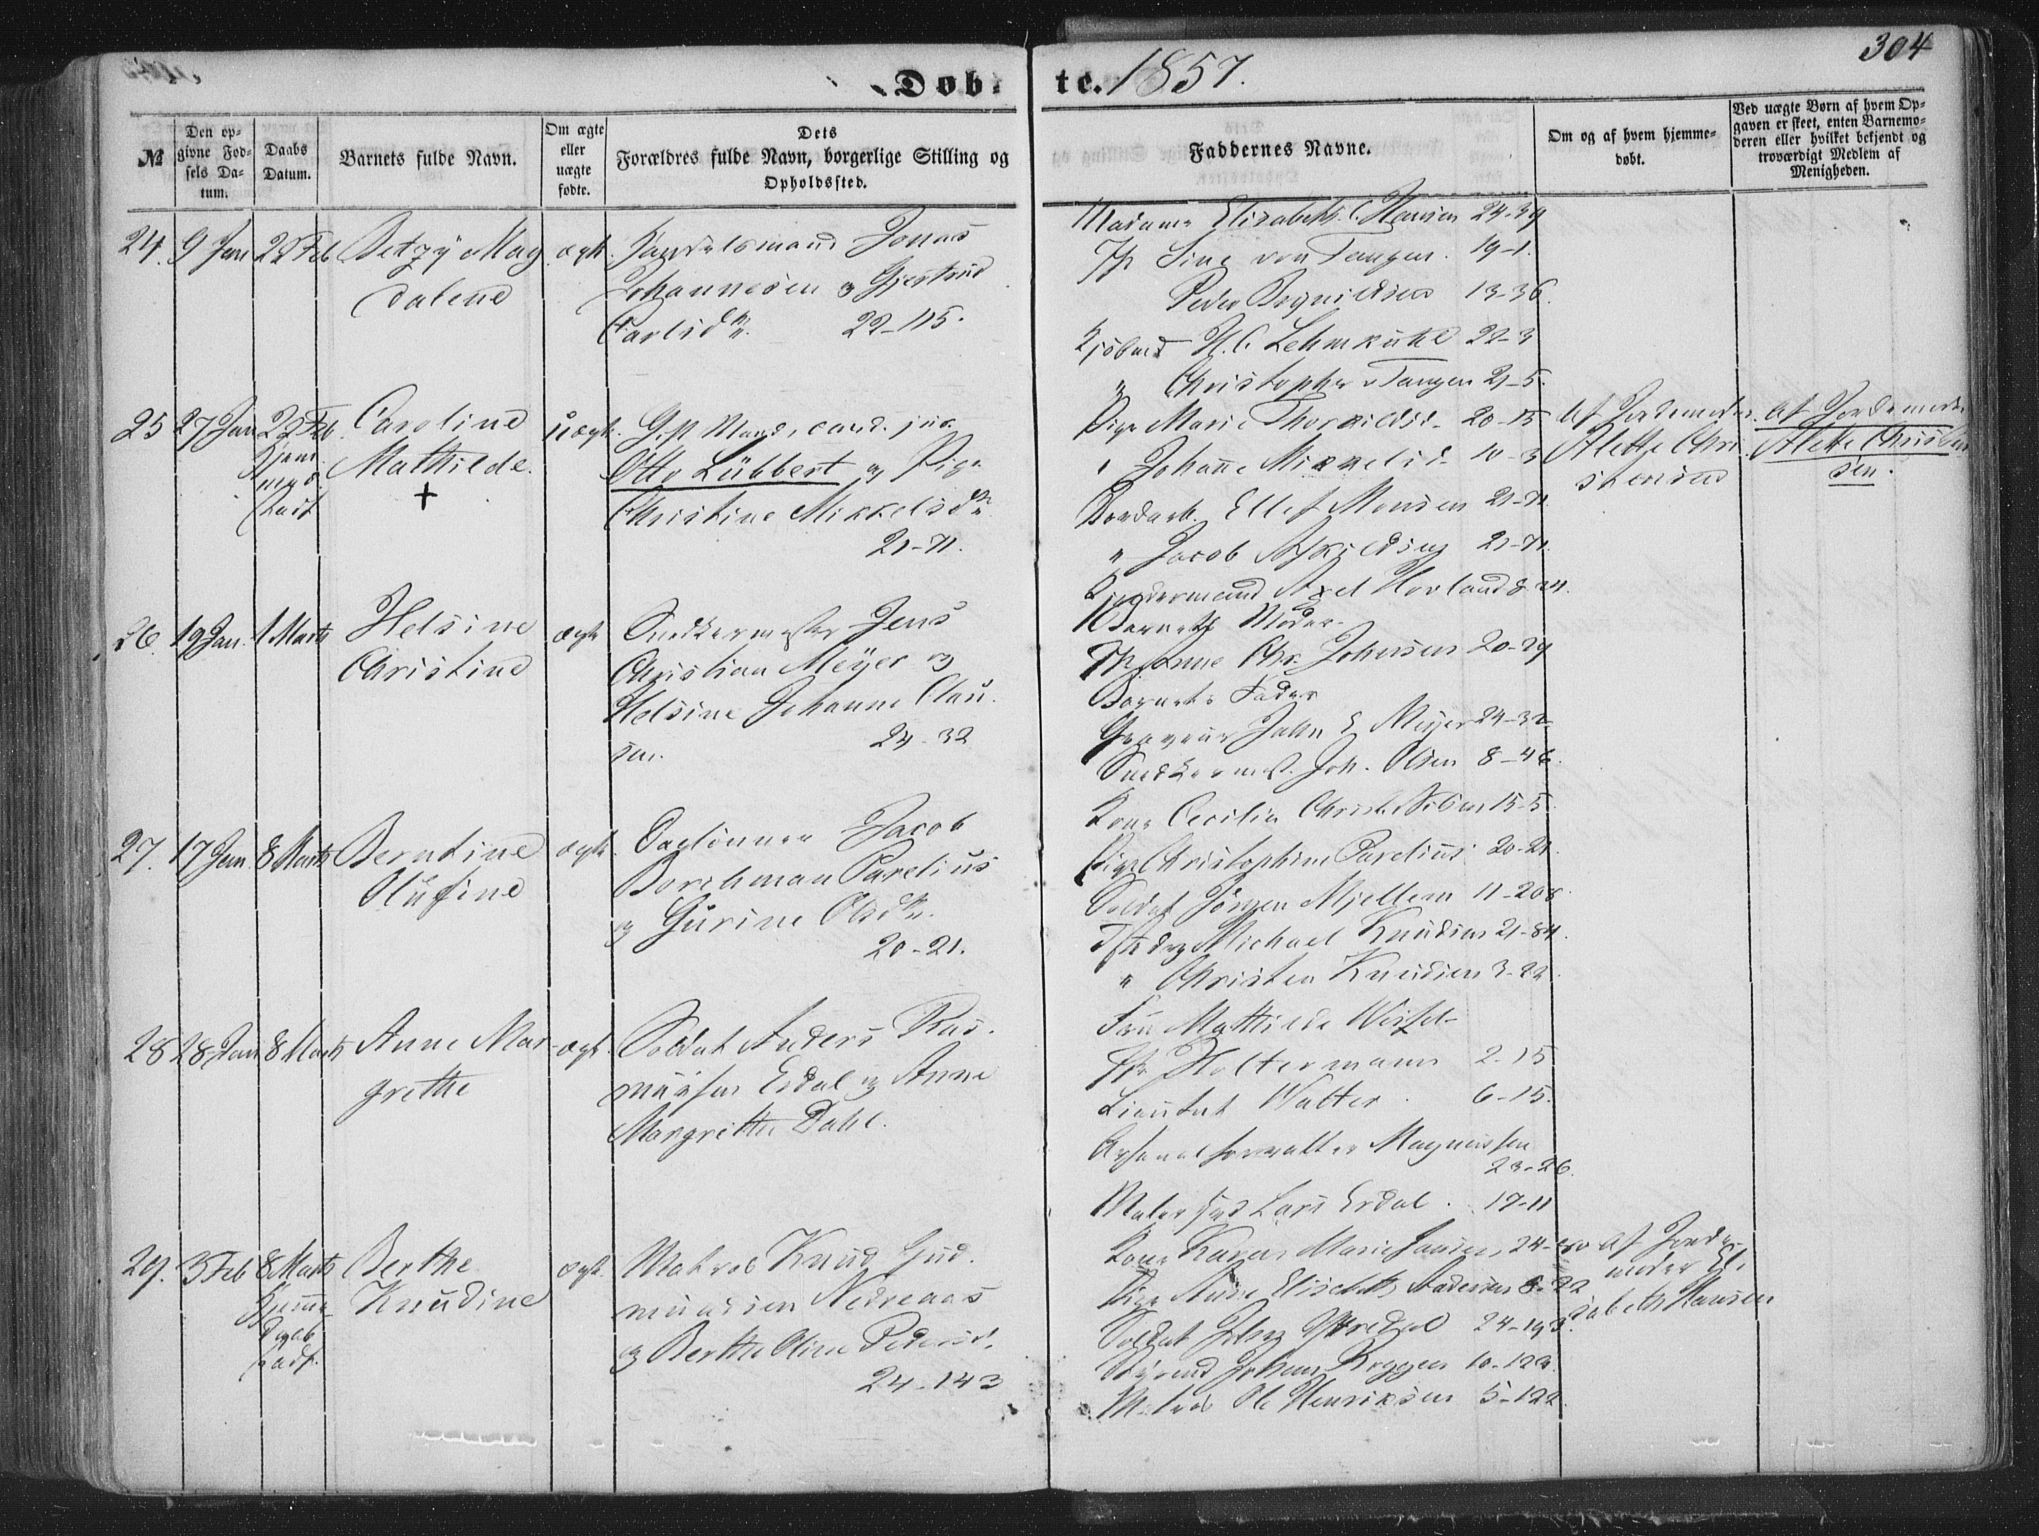 304
Døb- te. 1857.
№
Den op-
givne Fød-
sels Da-
tum.
Daabs
Datum.
Barnets fulde Navn.
Om ægte
eller
uægte
fødte.
Dets
Forældres fulde Navn, borgerlige Stilling og
Opholdssted.
Faddernes Navne.
Om og af hvem hjemme-
døbt.
Ved uægte Børn af hvem Op-
gaven er skeet, enten Barnemo-
deren eller hvilket bekjendt og
troværdigt Medlem af
Menigheden.
24. 9 Jan 22 Feb Betzy Mag
dalene
ægte Handelsmand Jonas
Johannesen og Gjertrud
Carlsdtr. 22-115.
Madame Elisabeth C. Hansen 24-39
Jfr Sine von Tangen. 19-1.
Peder Bognildsen 13-36.
Kjøbmd H. C. Lehmkuhl 22-3
" Christopher v Tangen 21-5.
25 27 Jan 22 Feb Caroline
Mathilde.
+
Hjem
døb
uægte Gift Mand, cand. jur.
Otto Lübbert og Pige
Christine Mikkelsdtr
21-71.
Pige Marie Thorkildsd. 20-15
" Johanne Mikkelsd. 10-3
Ellef Monsen 21-71
" Jacob Askildsen 21-71.
Axel Hovland 8-24.
Af Jordemoder
Alette Chri
stensen
Af Jordemoder
Alette Christen
sen.
26. 19 Jan. 1 Marts Helsine
Christine
ægte Snedkermester Jens
Christian Meyer og
Helsine Johanne Clau
sen. 24-32
Barnets Moder.
Jfr Anne Chr. Johnsen 20-29
Barnets Fader
Graveur John E Meyer 24-32
Snedkermest. Joh. Olsen 8-46.
27. 17 Jan. 8 Marts Berntine
Olufine
ægte Daglønner Jacob
Borchman Parelius
og Gurine Olsdtr.
20-21.
Kone Cecilia Christ. Nilsen 15-5.
Pige Christophine Parelius 20-21.
Soldat Jörgen Mjellem 11-208.
Michael Knudsen 21-84.
" Christen Knudsen 3-22.
28 28 Jan 8 Marts Anne Mar
grethe
ægte Soldat Anders Ras.
mussen Erdal og Anne
Margrethe Dahl.
Fru Mathilde
Jfr Holtermann 2-15
Lieutnt Walter. 6-15.
Arsenalforvalter Magnussen
23-26.
Lars Erdal. 17-11
29. 3 Feb 8 Marts Berthe
Knudine
Hjemme
døb
ægte Matros Knud Gud.
mundsen Nedreaas
og Berthe Oline Pedersd.
24-143
Kone Karen Marie Hansen, 24-
Pige Anne Elisabeth Andersen 8-22
Soldat 24-193.
Johan Bryggen 10-122.
Matros Ole Henriksen 5-122.
Af Jorde-
moder El.
isabeth Hansen